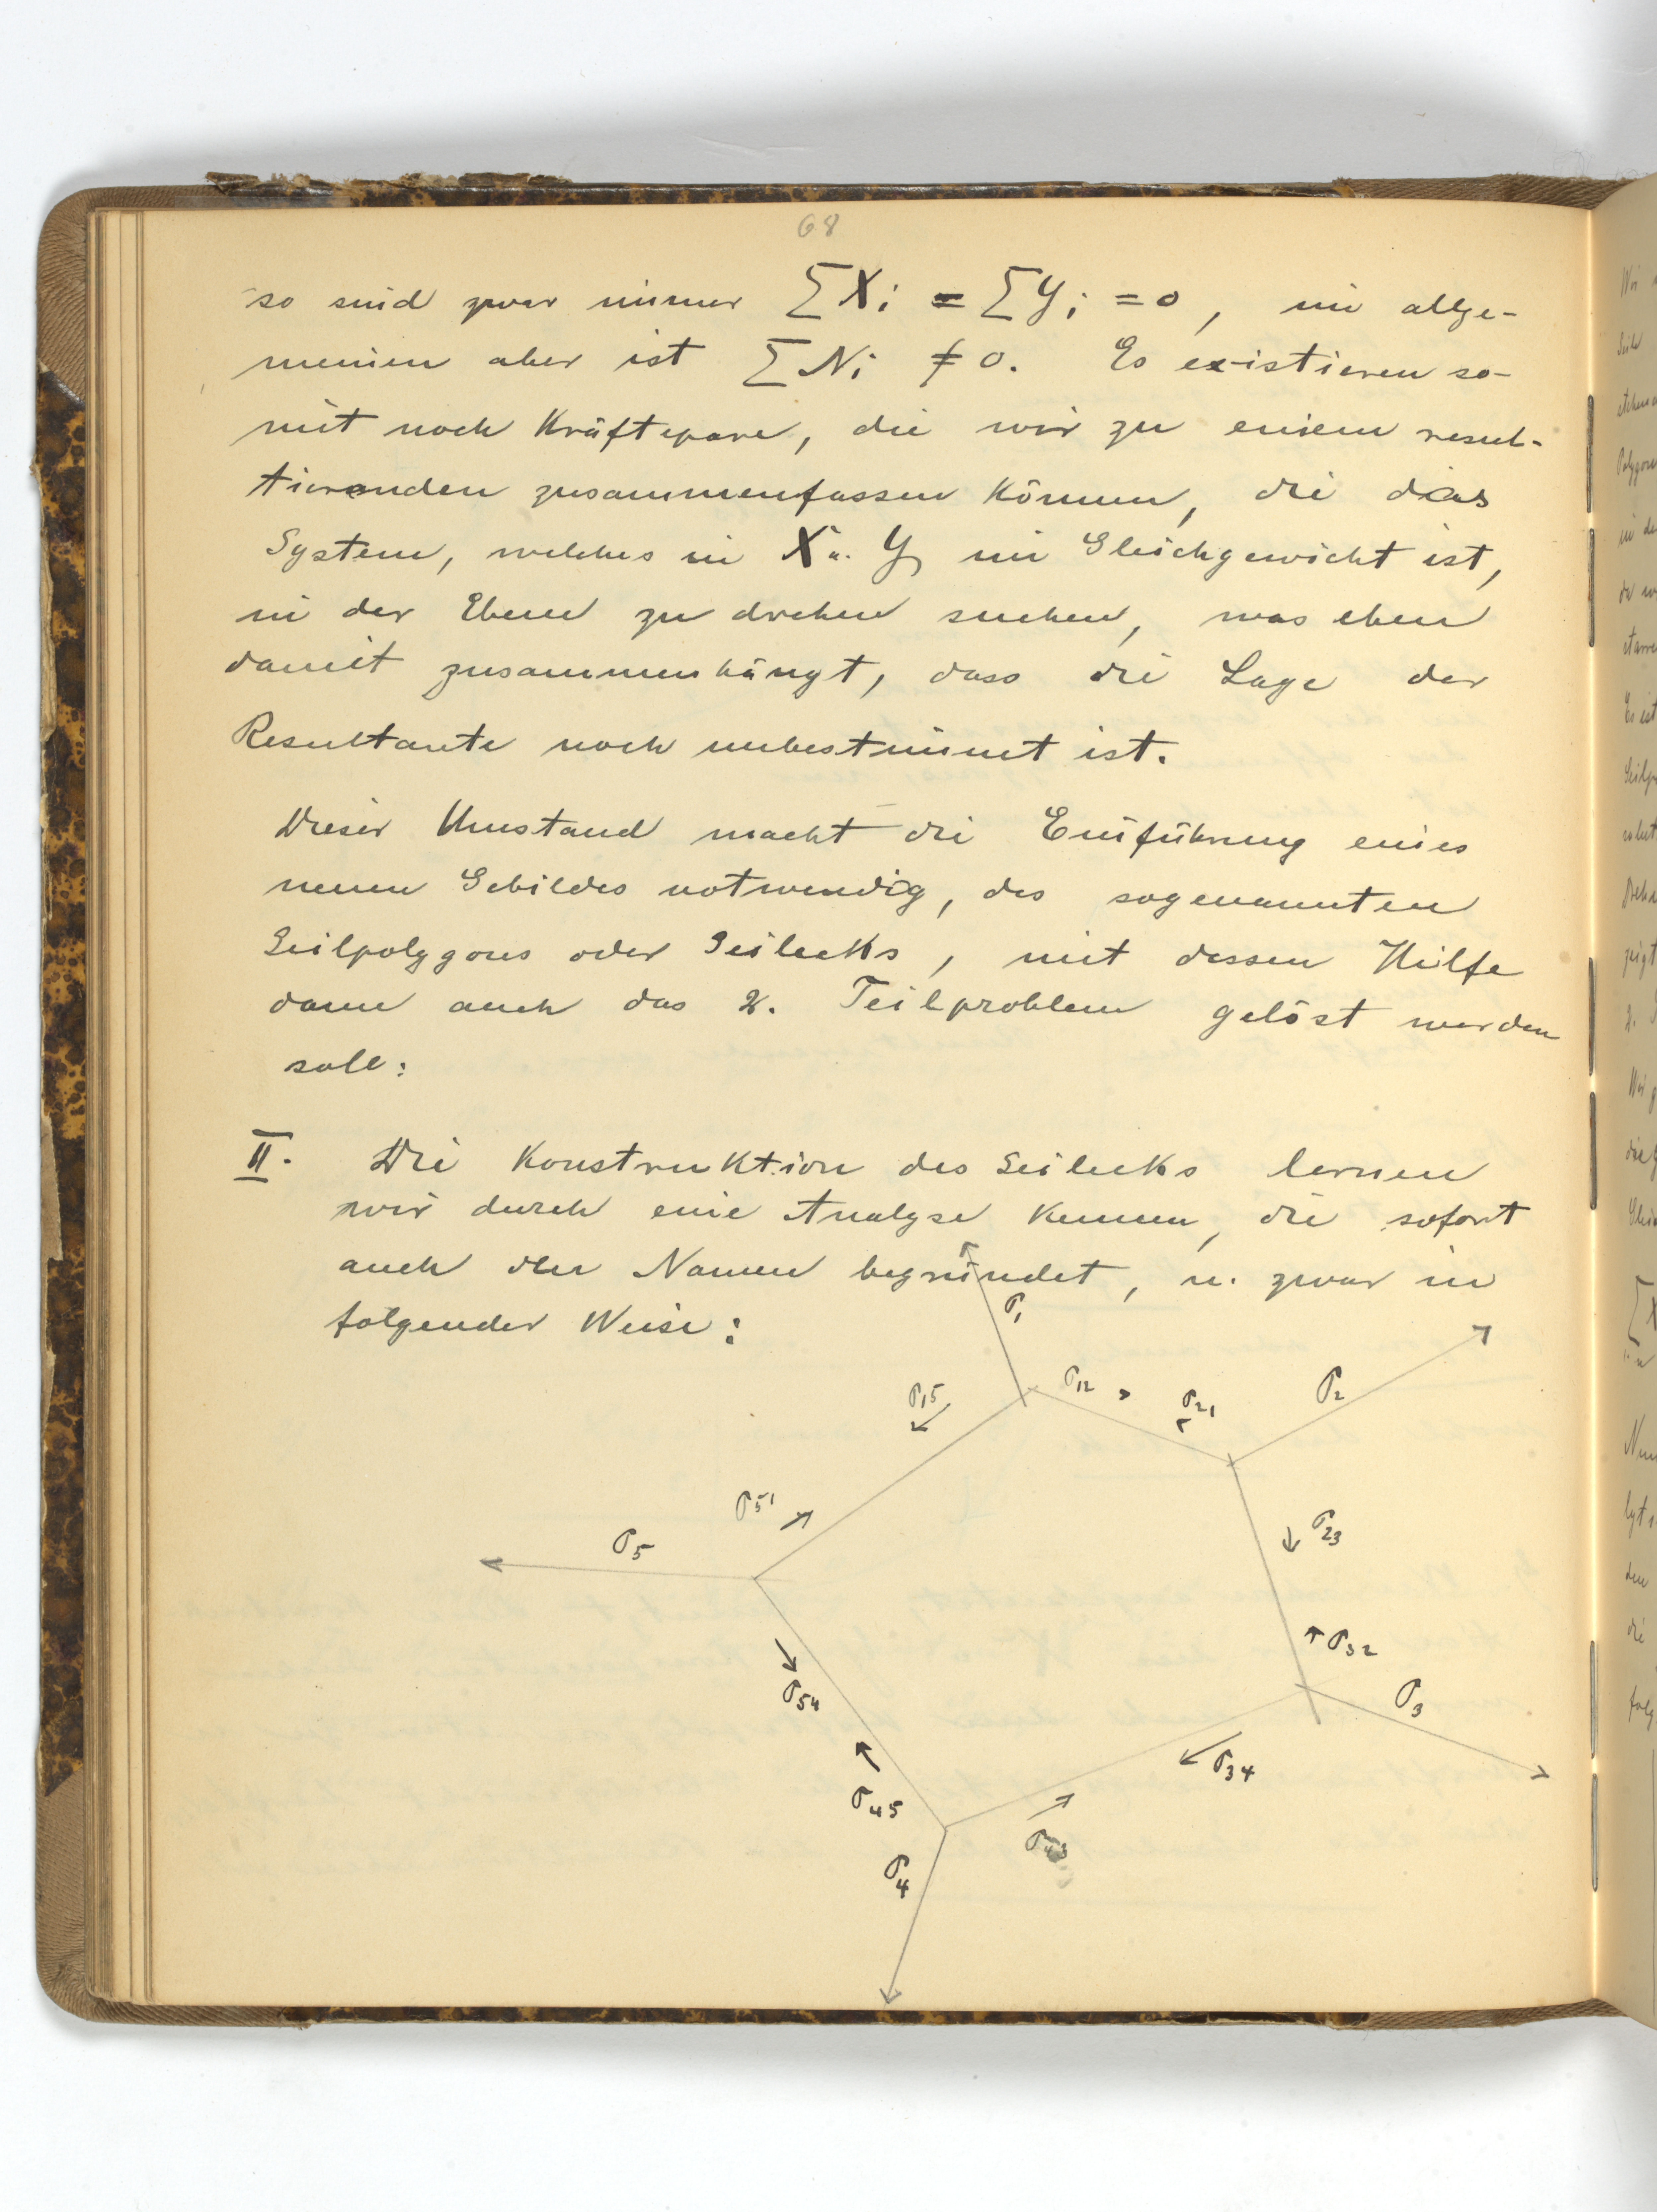 68
so sind zwar immer ∑Xi = ∑Yi = 0, im allge-
meinen aber ist ∑Ni ≠ 0. Es existieren so-
mit noch Kräftepare, die wir zu einem resul-
tierenden zusammenfassen können, die das
System, welches in X u. Y im Gleichgewicht ist,
in der Ebene zu drehen suchen, was eben
damit zusammenhängt, dass die Lage der
Resultante noch unbestimmt ist.
Dieser Umstand macht die Einführung eines
neuen Gebildes notwendig, des sogenannten
Seilpolygons oder Seilecks, mit dessen Hilfe
dann auch das 2. Teilproblem gelöst werden
soll:
II. Die Konstruktion des Seilecks lernen
wir durch eine Analyse kennen, die sofort
auch den Namen begründet, u. zwar in
folgender Weise:
σ1
σ12
σ21
σ2
σ15
σ51
σ5
σ23
σ32
σ3
σ54
σ34
σ45
σ43
σ4